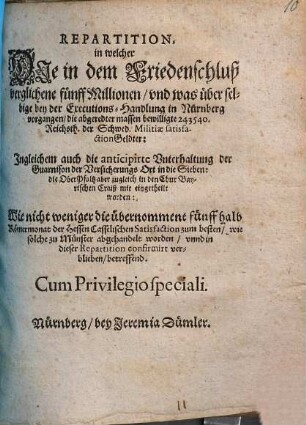 REPARTITION,
in welcher
DJe in dem Friedenschluß
verglichene fünff Millionen / vnd was über sel-
bige bey der Executions-Handlung in Nürnberg
vorgangen / die abgeredter massen bewilligte 243540.
Reichsth. der Schwed. Militiæ satisfa-
ction Gelder:
Jngleichem auch die anticipirte Vnterhaltung der
Guarnison der Versicherungs Ort in die Sieben:
die Ober Pfaltz aber zugleich in den Chur Bay-
rischen Craiß mit eingetheilt
worden:
Wie nicht weniger die übernommene fünff halb
Römermonat der Hessen Casselischen Satisfaction zum besten / wie
solche zu Münster abgehandelt worden / vnnd in
dieser Repartition confirmirt ver-
blieben / betreffend.
Cum Privilegio speciali.
Nürnberg / bey Jeremia Dümler.